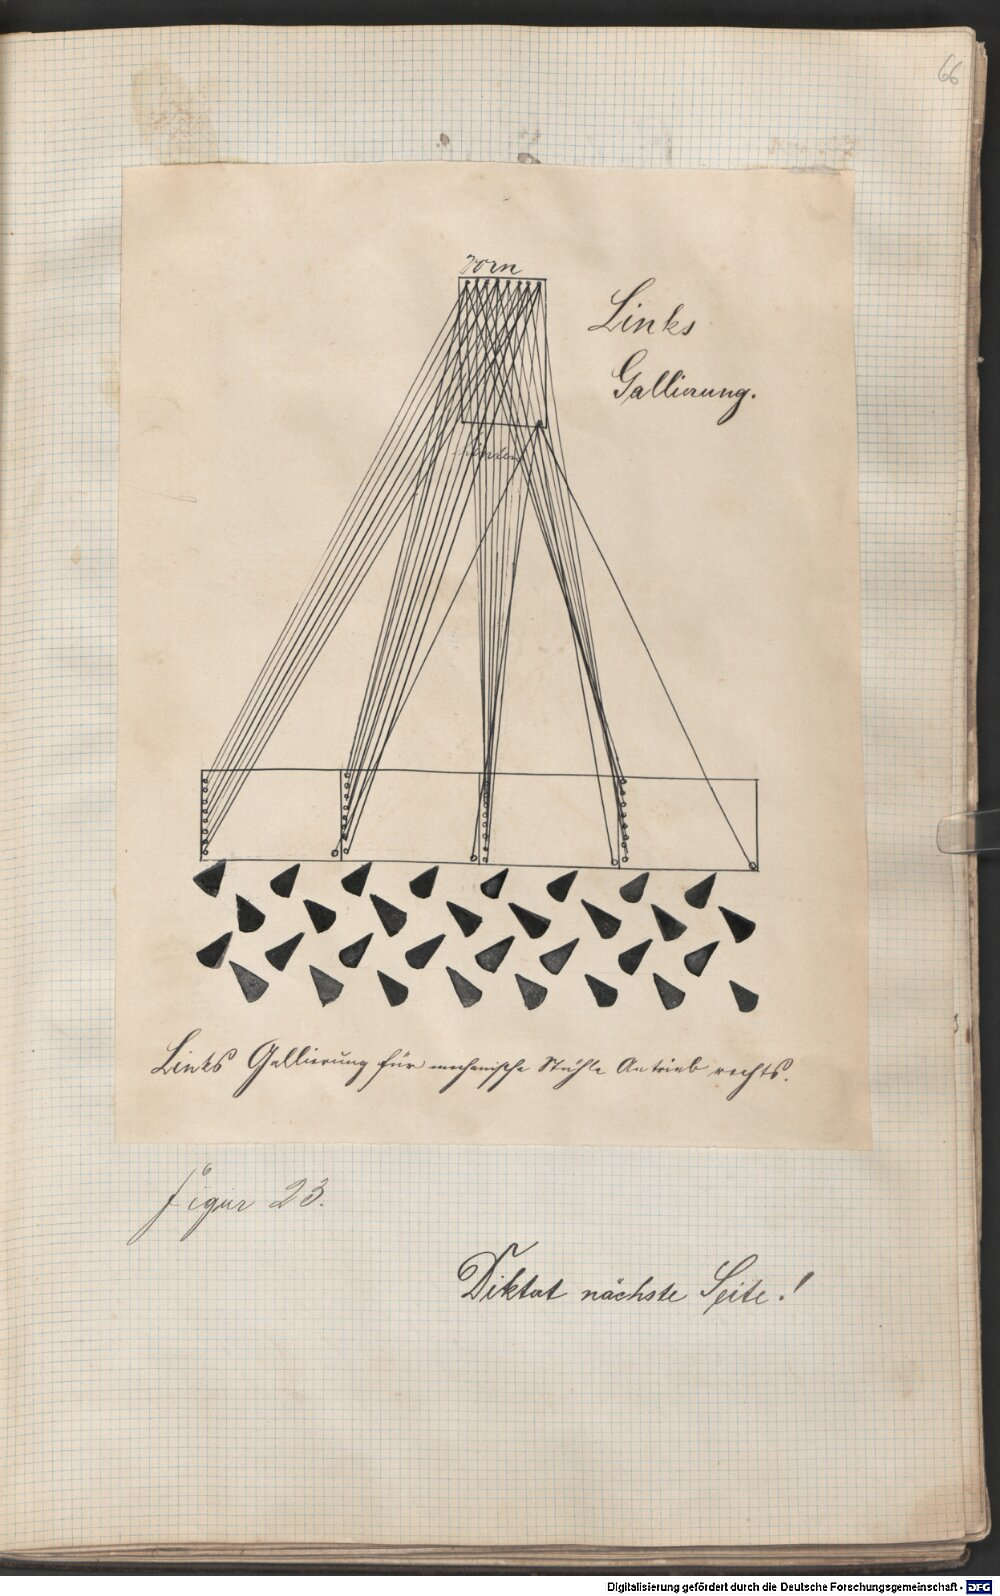 66
Vorn
Links
Gallierung.
Hinten
Links Gallierung für mechanische Stühle Antrieb rechts.
Figur 23.
Diktat nächste Seite!
Digitalisierung gefördert durch die Deutsche Forschungsgemeinschaft - DFG